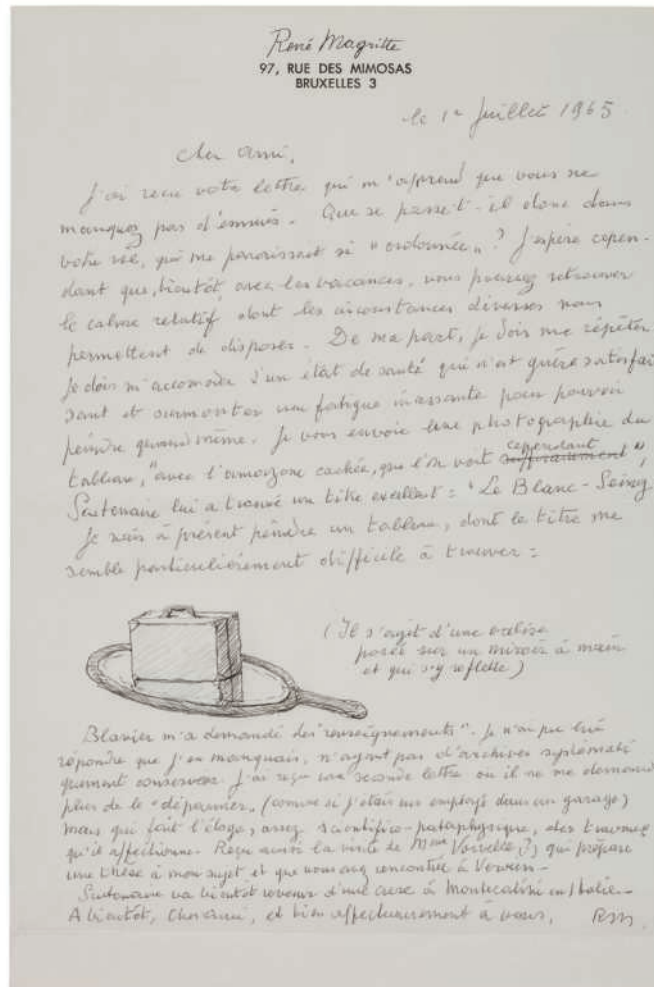 René Magritte
97, RUE DES MIMOSAS
BRUXELLES 3
le 1er Juillet 1965
cher ami,
J'ai reçu votre lettre qui m'apprend que vous ne
manquez pas d'ennuis. Que se passe-t-il donc dans
votre vie, qui me paraissait si "ordonnée"? J'espère cepen-
dant que, bientôt, avec les vacances, vous pourrez retrouver
le calme relatif dont les circonstances diverses nous
permettent de disposer. De ma part, je dois me répéter
je dois m'accomoder d'un état de santé qui n'est guère satisfai
sant et surmonter une fatigue incessante pour pouvoir
peindre quand même. Je vous envoie une photographie du
cependant
tableau, "avec l'amazone cachée, que l'on voit suffisamment",
Scutenaire lui a trouvé un titre excellent : "Le Blanc-Seing"
Je vais à présent peindre un tableau, dont le titre me
semble particulièrement difficile à trouver :
(Il s'agit d'une valise
posée sur un miroir à main
et qui s'y reflète)
Blavier m'a demandé des "renseignements". Je n'ai pu lui
répondre que j'en manquais, n'ayant pas d'archives systémati
quement conservées. J'ai reçu une seconde lettre où il ne me demande
plus de le "dépanner" (comme si j'étais un employé dans un garage)
mais qui fait l'éloge, assez scientifico-pataphysique, des travaux
qu'il affectionne. Reçu aussi la visite de Mme Vovelle (?) qui prépare
une thèse à mon sujet et que vous avez rencontrée à
Scutenaire va bientôt revenir d'une cure à Montecatini en Italie.
A bientôt, cher ami, et bien affectueusement à vous,
RM